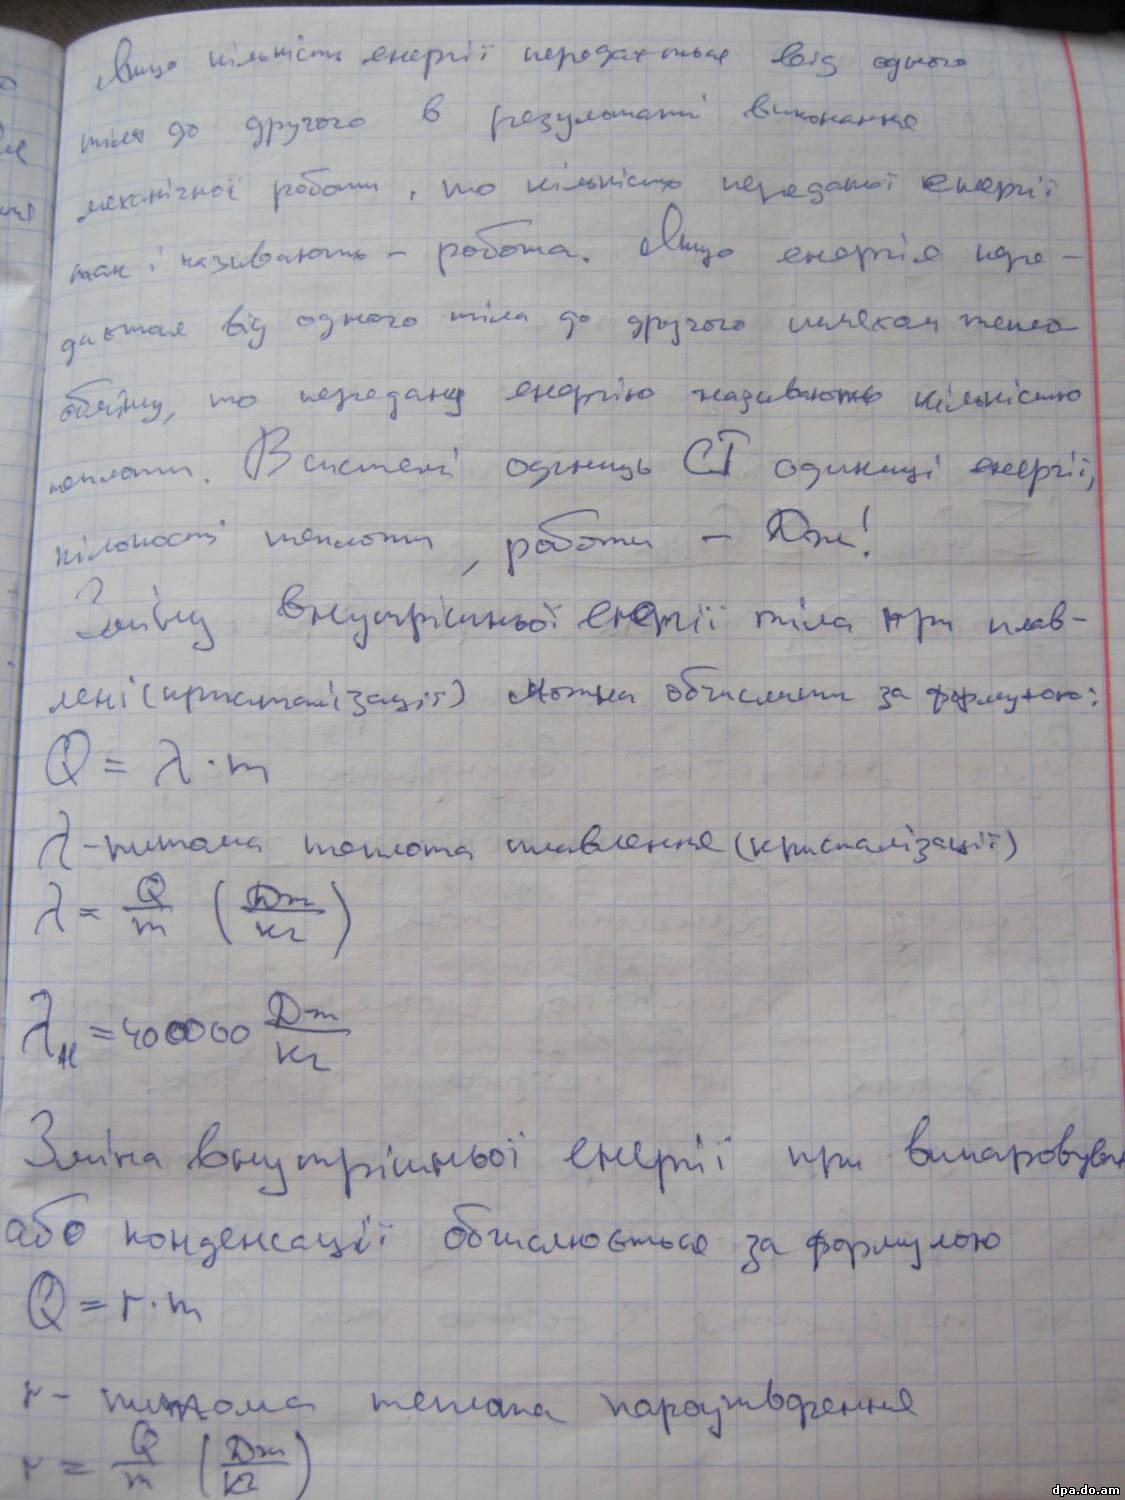 Якщо кількість енергії передається від одного
тіла до другого в результаті виконання
механічної роботи, то кількість переданої енергії
так і називають - робота. Якщо енергія пере-
дається від одного тіла до другого шляхом тепло
обміну, то передану енергію називають кількістю
теплоти. В системі одиниць СІ одиниці енергії,
кількості теплоти, роботи - Дж!
Зміну внутрішньої енергії тіла при плав-
лені (кристалізації) можна обчислити за формулою:
Q = λ · m
λ - питома теплота плавлення (кристалізації)
λ = Q/m (Дж/кг)
λ = 400000 Дж/кг
Зміна внутрішньої енергії при випаровуван
або конденсації обчислюється за формулою
Q = r · m
r - питома теплота пароутворення
r = Q/m (Дж/кг)
dpa.do.am